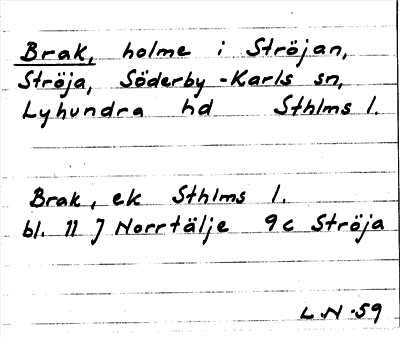 Brak, holme i Ströjan,
Ströja, Söderby-Karls sn,
Lyhundra hd Sthlms l.
Brak, ek Sthlms l.
bl. 11 J Norrtälje 9c Ströja
L.N.59